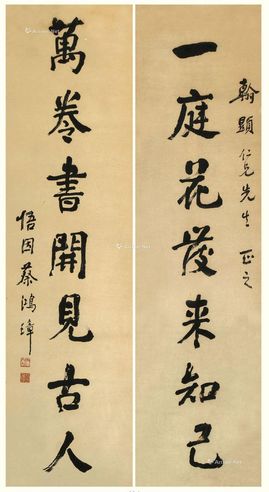 翰顯仁兄先生 正之
一庭花發来知己
萬卷書開見古人
悟因蔡鴻璋